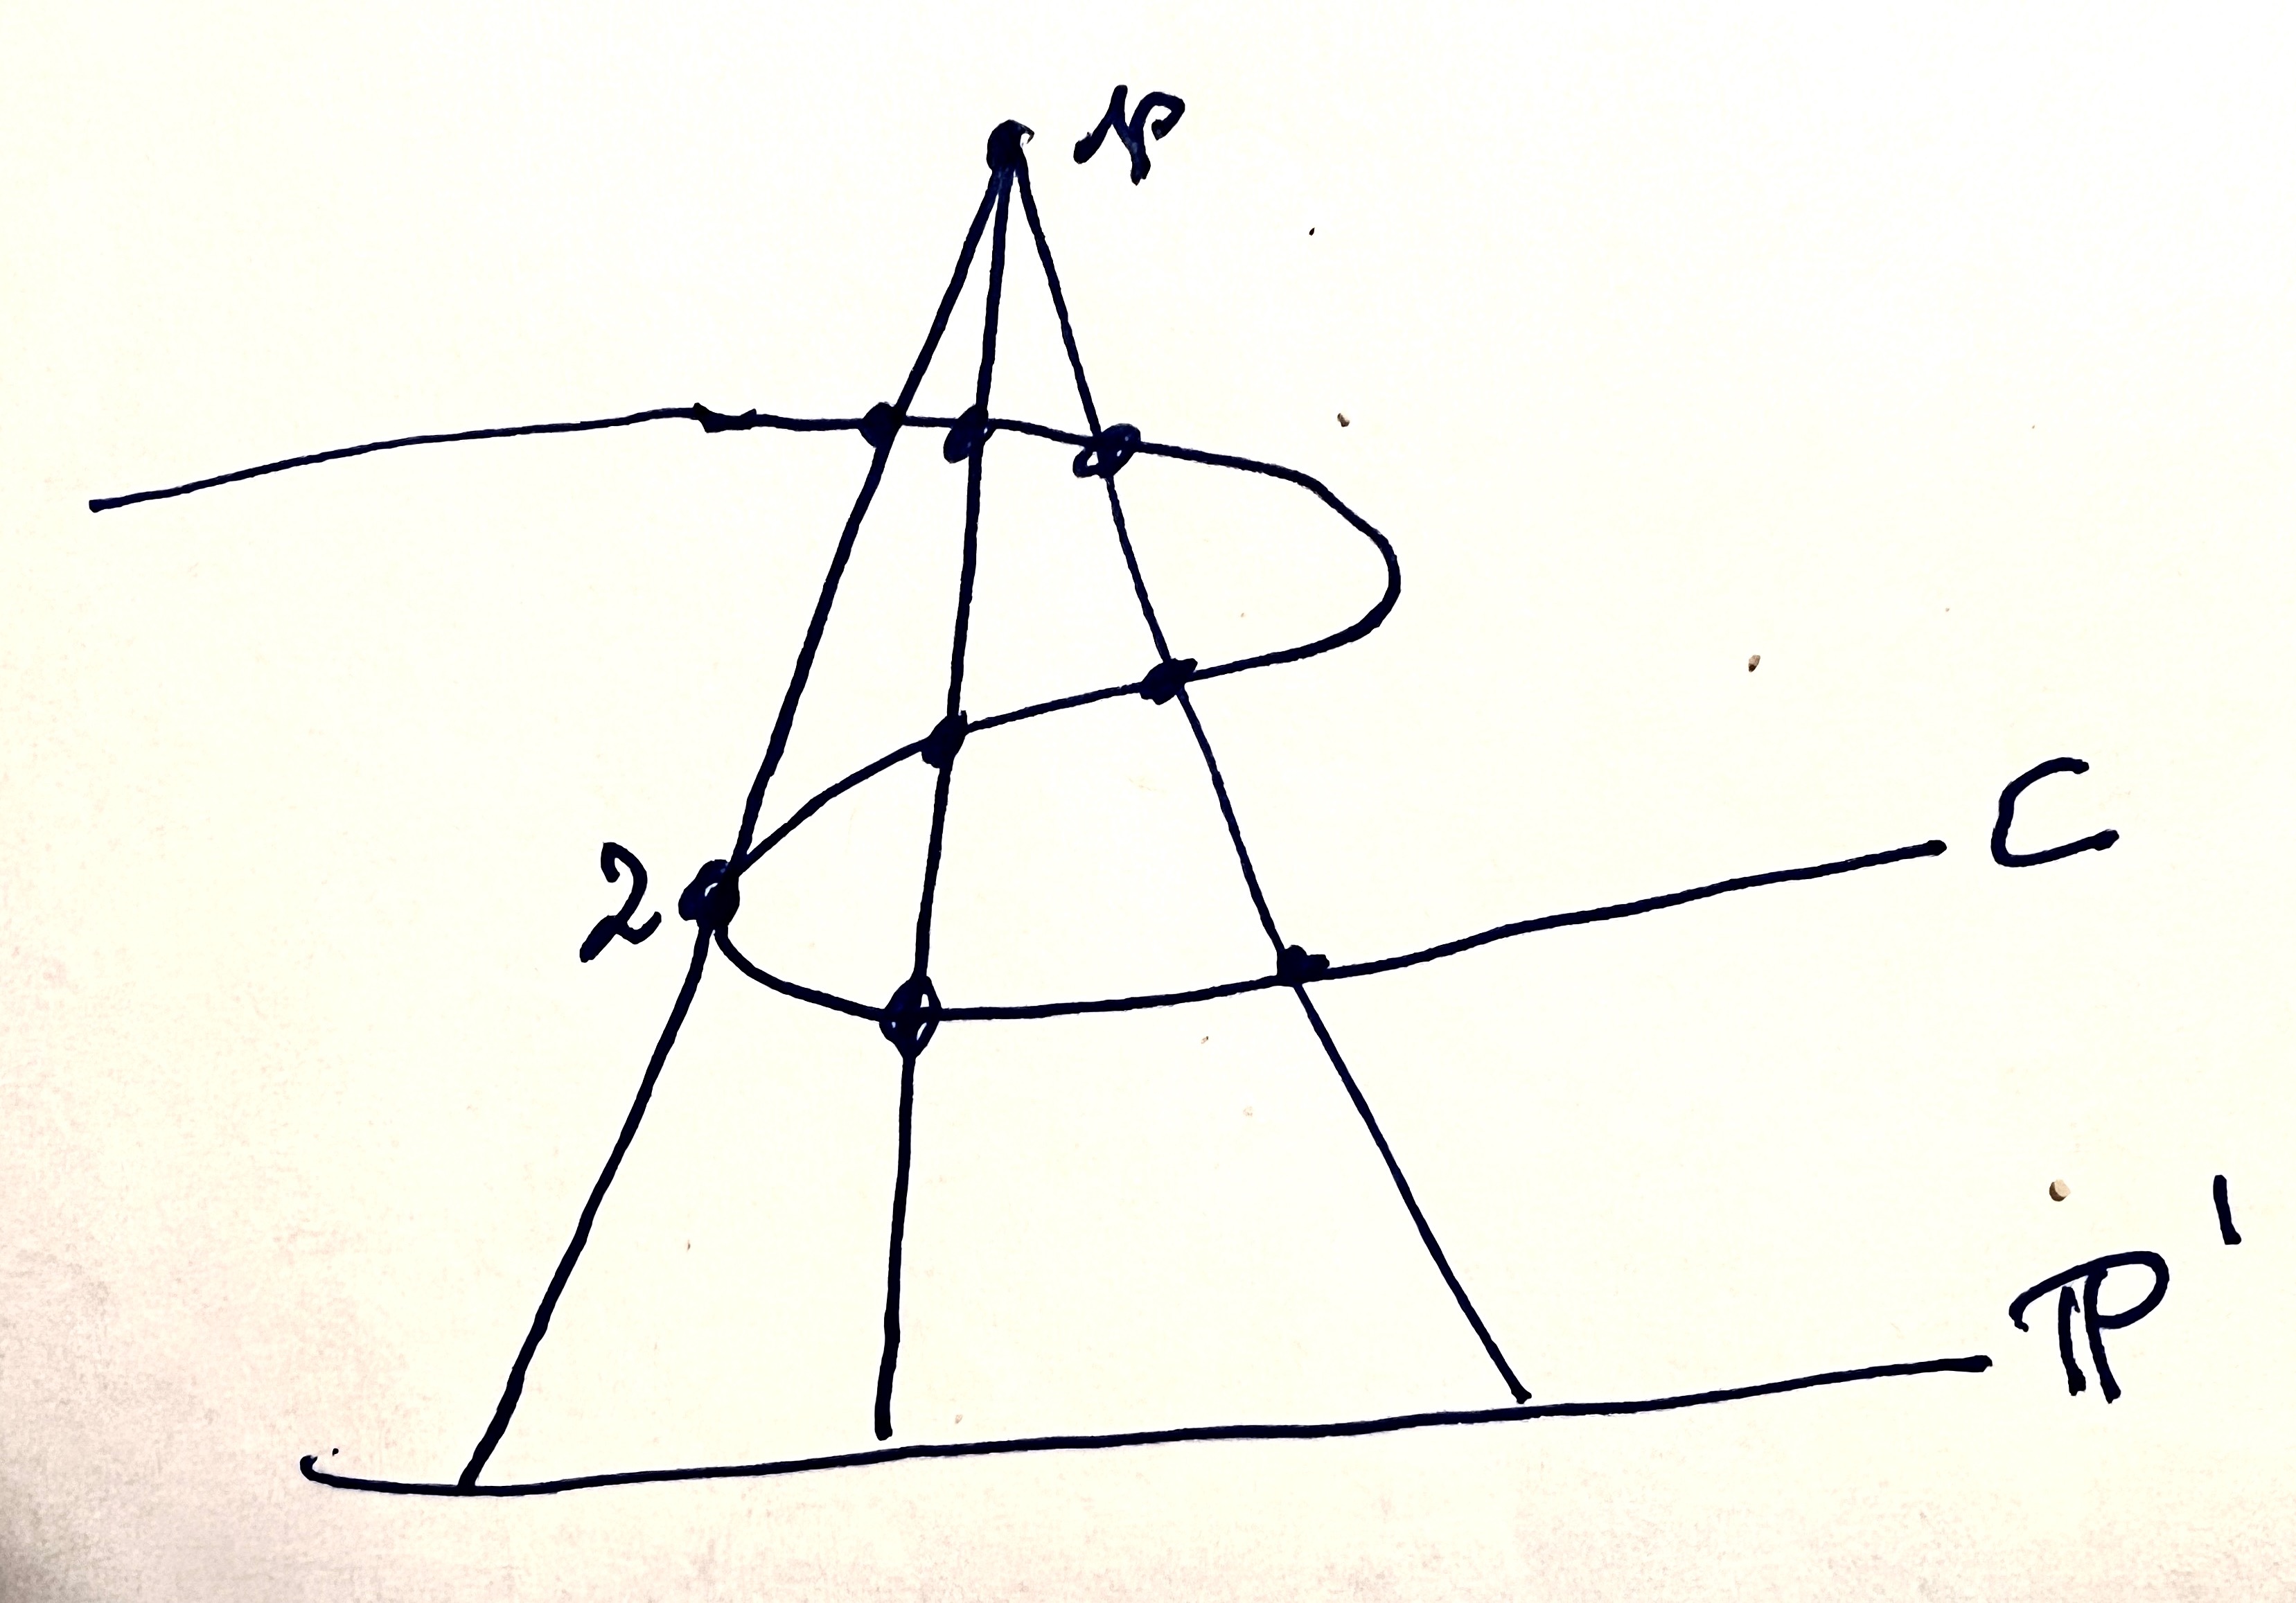 p
2
C
ℙ¹